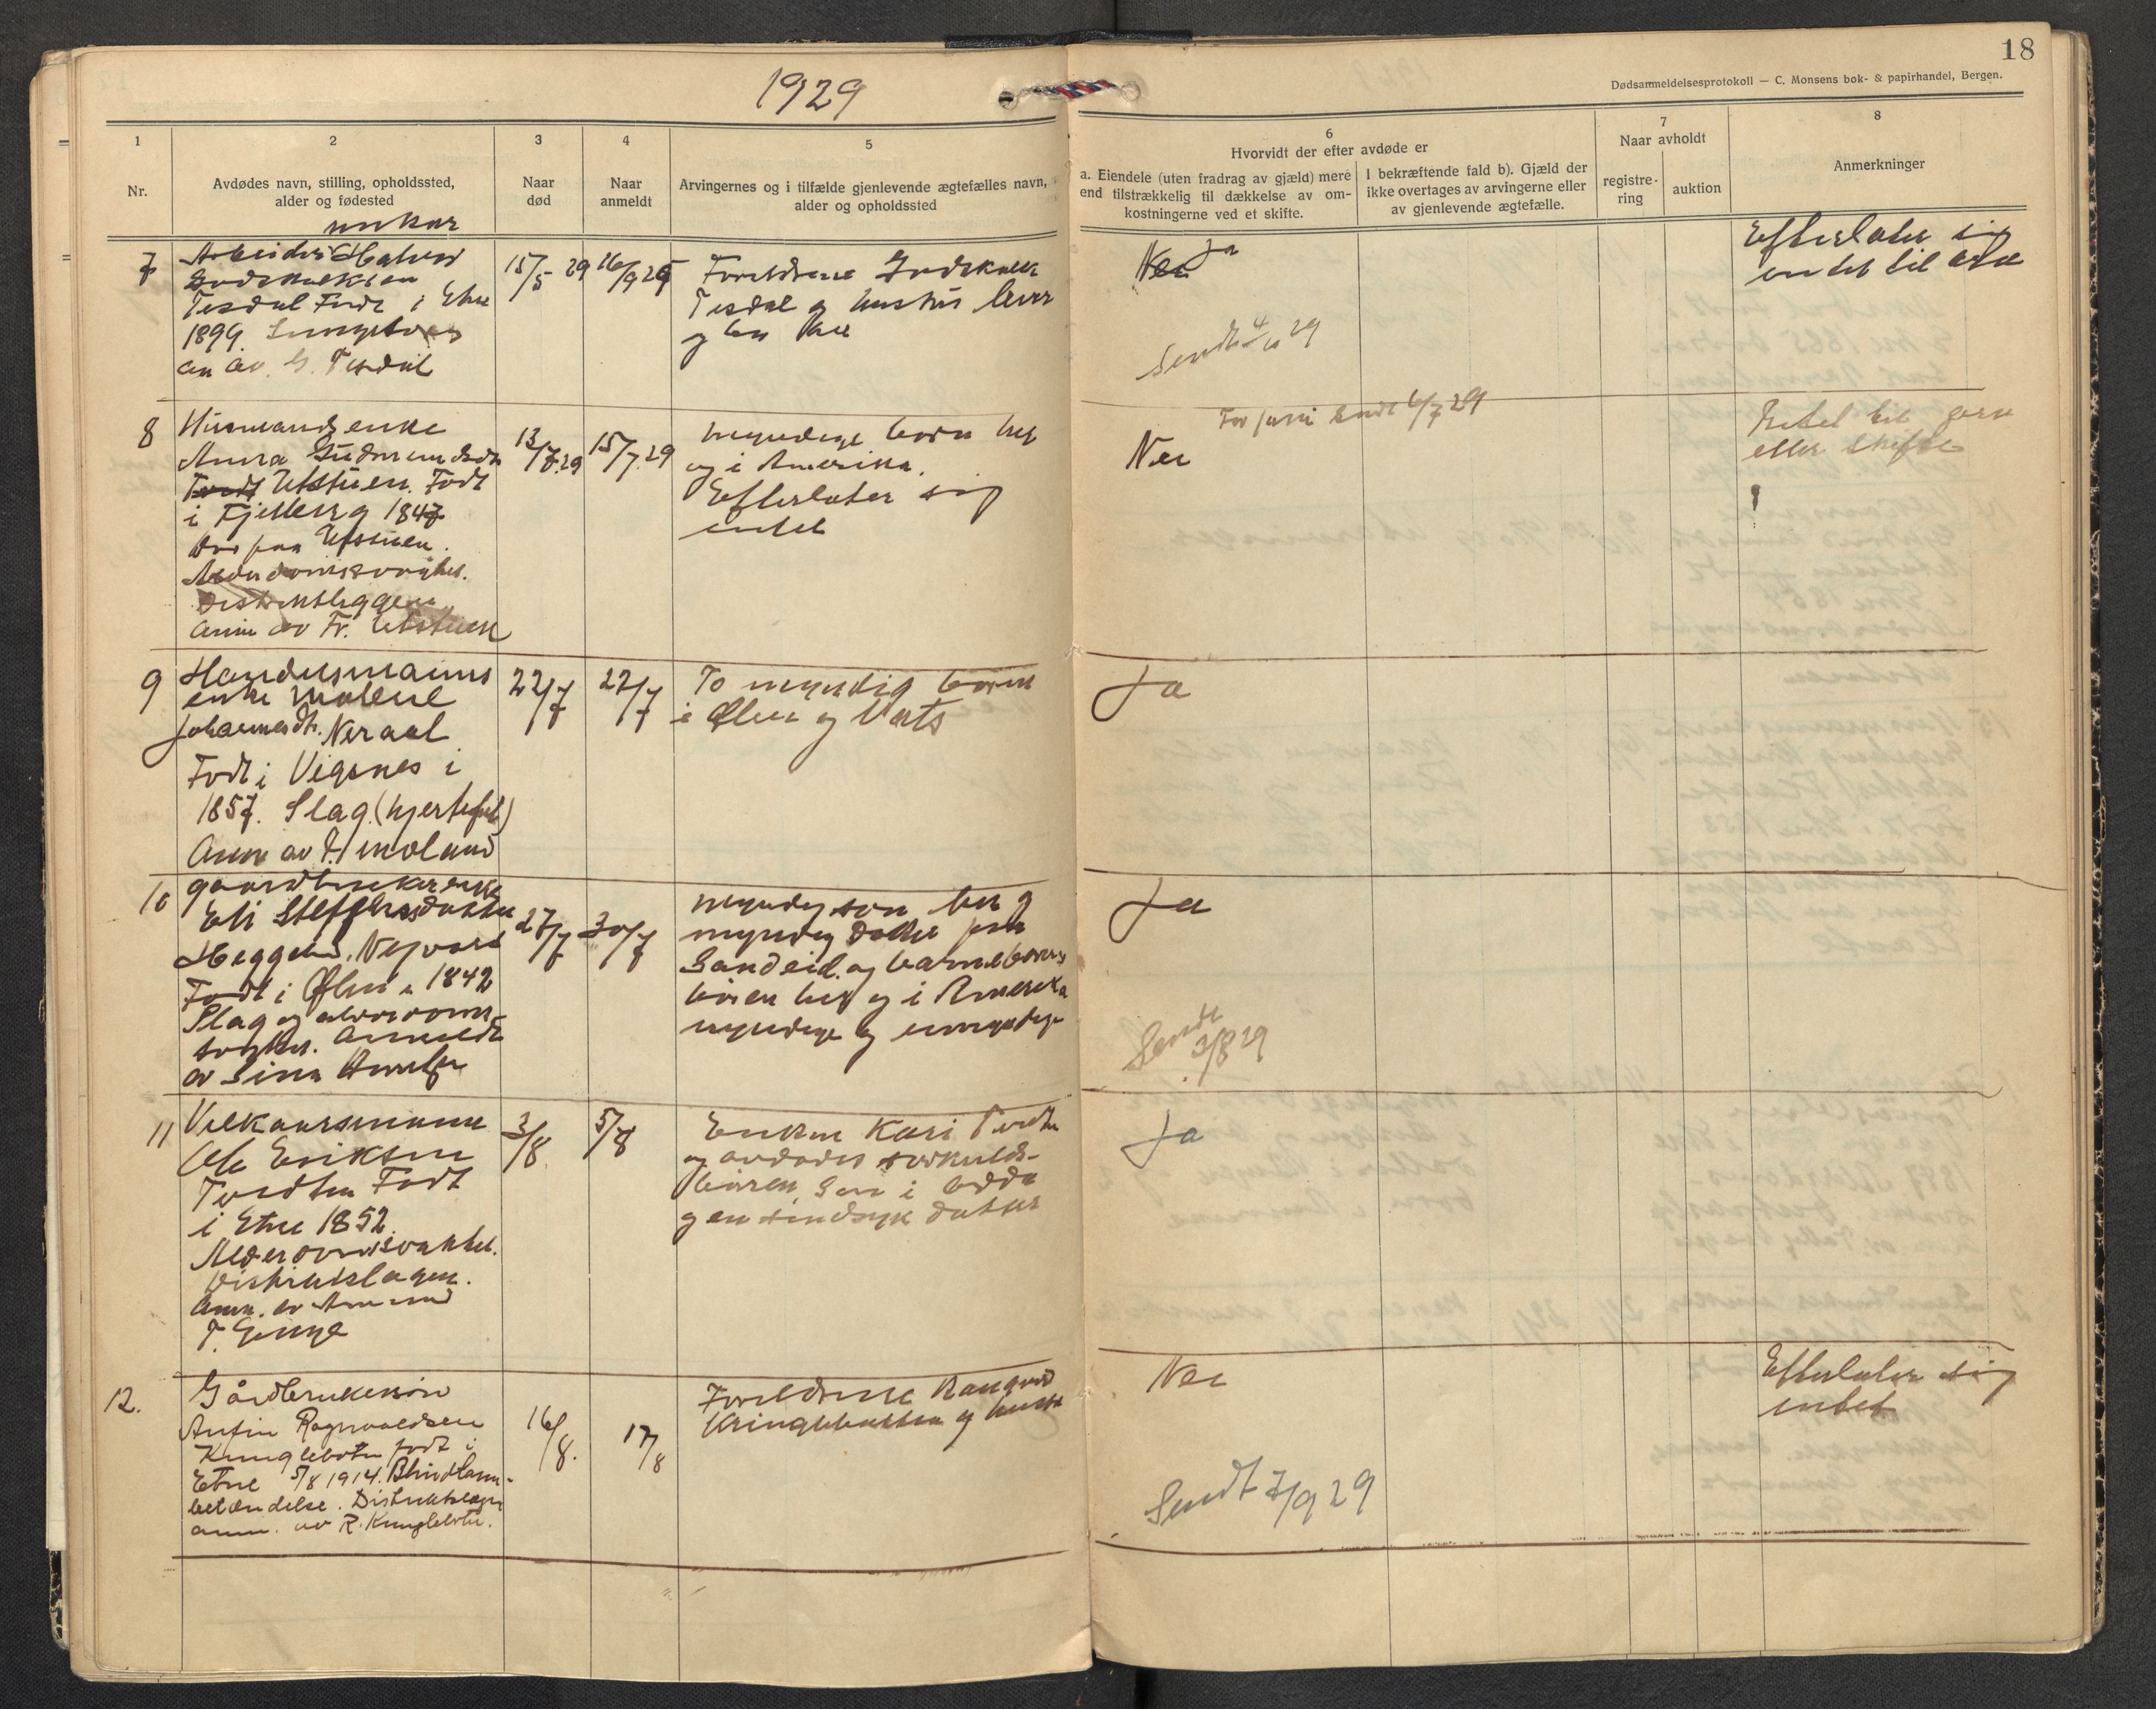 1929
18
Dødsanmeldelsesprotokoll — C. Monsens bok- & papirhandel, Bergen.
1
2
3
4
5
6
7
8
Nr.
Avdødes navn, stilling, opholdssted,
alder og fødested
Naar
død
Naar
anmeldt
Arvingernes og i tilfælde gjenlevende ægtefælles navn,
alder og opholdssted
Hvorvidt der efter avdøde er
a. Eiendele (uten fradrag av gjæld) mere
end tilstrækkelig til dækkelse av om-
kostningerne ved et skifte.
I bekræftende fald b). Gjæld der
ikke overtages av arvingerne eller
av gjenlevende ægtefælle.
Naar avholdt
registre-
ring
auktion
Anmerkninger
unkar
7
Arbeider Halvor
Godskalksen
Tesdal Født i Etne
1899.
an av. G. Tesdal
15/5 29
16/9 29
Foreldrene Godskalk
Tesdal og hustru lever
og bor her
Nei Ja
Sendt 29
Efterlater sig
intet til arv
8
Husmandsenke
Anna Gudmundsdtr
Utstuen. Født
i Fjelberg 1847
Død paa Utstuen.
Alderdomssvaghet.
Distriktslægen
Anm av Fr. Utstuen
13/7.29
15/7.29
myndige born her
og i Amerika.
Efterlater sig
intet
sendt 6/7 29
Nei
Intet til arv
eller skifte
9
Handelsmanns
enke Malene
Johannesdtr. Neraal
Født i Vigsnes i
1857. Slag. (hjertefeil)
Anm av Moland
22/7
27/7
To myndig born
i Ølen og Vats
Ja
10
gaardbrukerenke
Eli Steffensdatter
Heggelund,
Født i Ølen 1842
Slag og alderdoms-
svaghet. Anmeldt
av Sina
27/7
30/7
myndig son her og
myndig datter paa
Sandeid. og barnebarns
børen her og i Amerika
myndige og umyndige
Ja
Sendt
3/8 29
11
Velkaarsmann
Ole Eriksen
Tvedten Født
i Etne 1852.
Alderdomssvakhet.
Distriktslægen.
Anm. av Amund
T. Grinde
3/8.
5/8
Enken Kari Tvedten
og avdødes særkulds-
børen, Søn i Odda
og en sindsyk datter
Ja
12.
Gårdbrukersøn
Anfin Ragnvaldsen
Kringlebotn født i
Etne 5/8 1914. Blindtarm-
betændelse. Distriktslægen
anm. av R. Kringlebotn.
16/8.
17/8
Foreldrene Rangvald
Kringlebotten og hustru
Nei
Sendt 7/9 29
Efterlater sig
intet